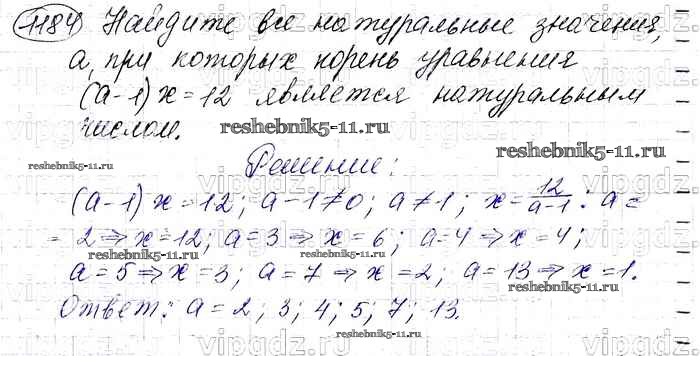 1184 Найдите все натуральные значения,
а, при которых корень уравнения
(а-1)х=12 является натуральным
числом.
reshebnik5-11.ru
reshebnik5-11.ru
reshebnik5-11.ru
Решение:
(а-1)х=12; а-1≠0; а≠1; х=12/а-1. а=
=2⇒х=12; а=3⇒х=6; а=4⇒х=4;
reshebnik5-11.ru
reshebnik5-11.ru
а=5⇒х=3; а=7⇒х=2; а=13⇒х=1.
Ответ: а=2; 3; 4; 5; 7; 13.
reshebnik5-11.ru
vipgdz.ru